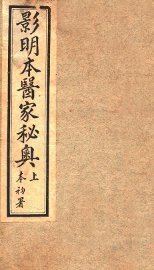 影明本醫家秘奧上
本初署